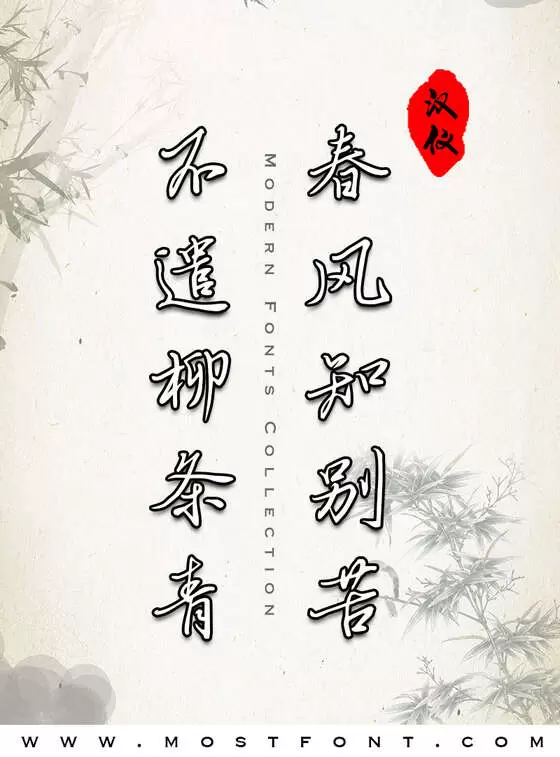 汉仪
春风知别苦
不遣柳条青
MODERN FONTS COLLECTION
WWW.MOSTFONT.COM